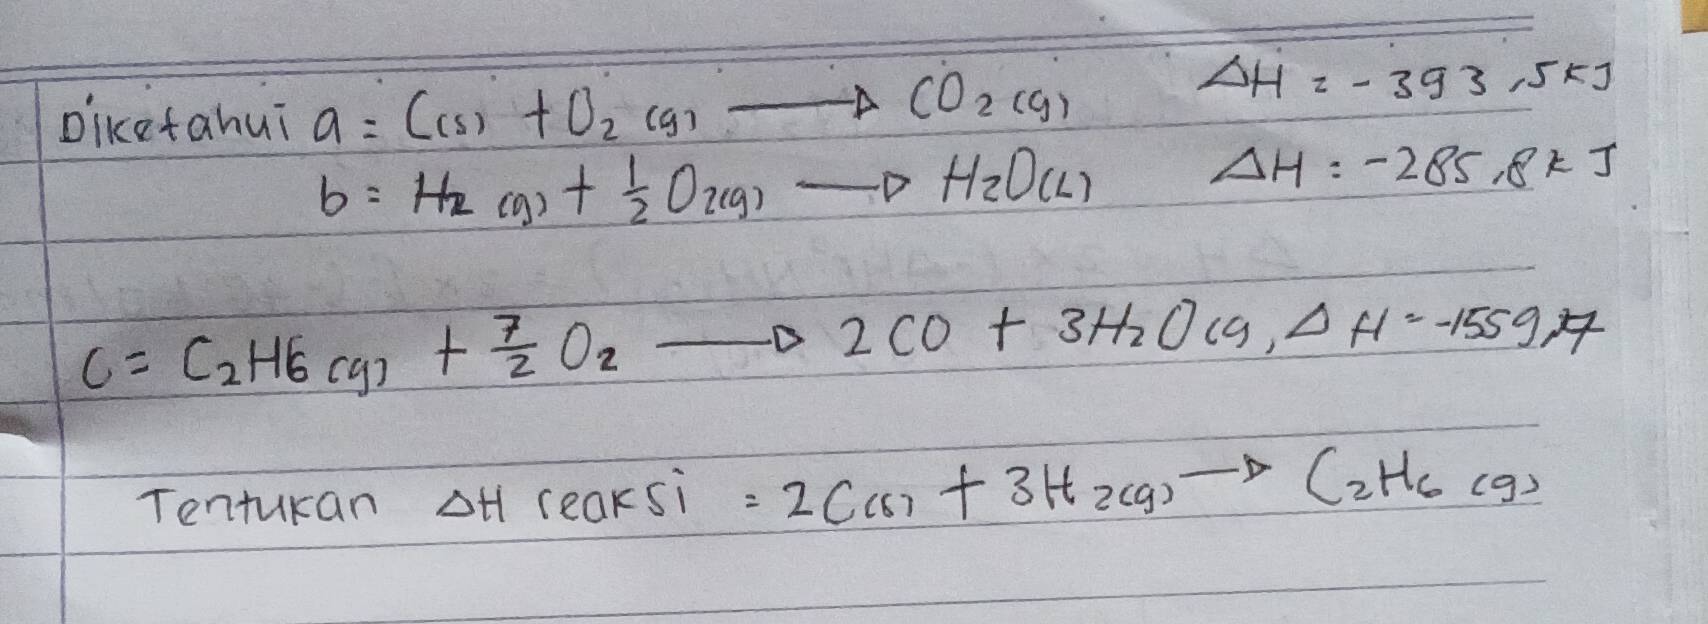 Diketahui a = C(s) + O₂ (g) → CO₂ (g) ΔH = -393,5 kJ
b = H₂ (g) + ½ O₂(g) → H₂O(L) ΔH = -285,8 kJ
C = C₂H₆ (g) + 7/2 O₂ → 2 CO + 3H₂O (g, ΔH = -1559,7
Tentukan ΔH reaksi = 2C(s) + 3H₂(g) → C₂H₆ (g)